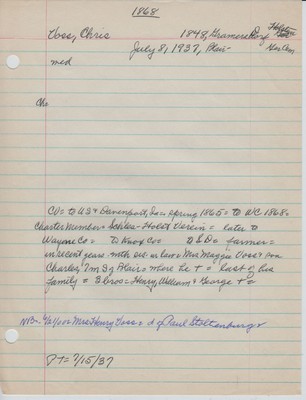 1868
Voss, Chris 1848, Holstein
July 8, 1937, Plair Ger Am
med
Che
CO= to US & Davenport, Ia= spring 1865= to WC 1868=
Charter Member= Schles- Holst Verein= later to
Wayne Co= to Knox Co= to S D= farmer=
in recent years mth sis in law= Mrs Maggie Voss & son
Charles, 7m S of Blair= where he +=last of his
family= 3 bros= Henry, William & George +=
NB= Mrs Henry Voss= d of Paul Stoltenburg
PT= 7/15/37